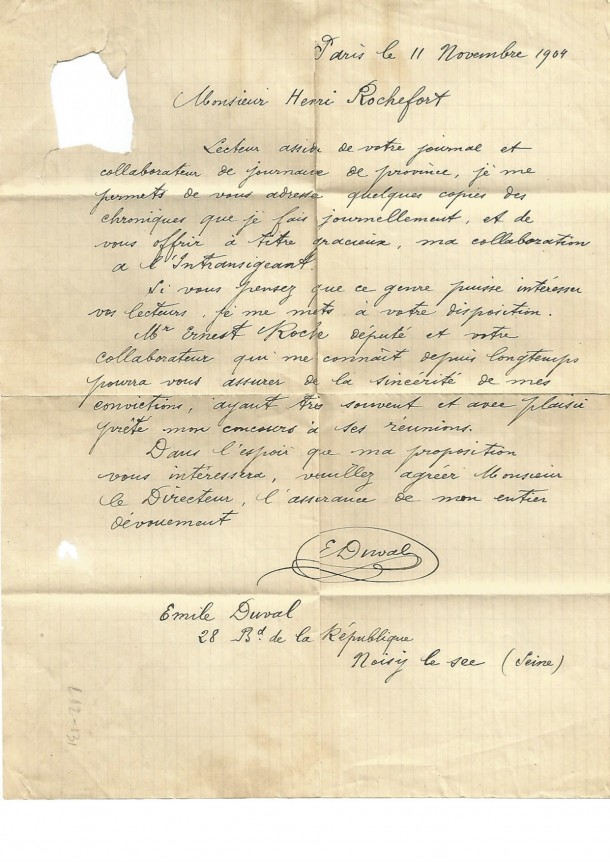 Paris le 11 Novembre 1904
Monsieur Henri Rochefort
Lecteur assidu de votre journal et
collaborateur de journaux de province, je me
permets de vous adresse quelques copies des
chroniques que je fais journellement, et de
vous offrir à titre gracieux, ma collaboration
a l'Intransigeant
Si vous pensez que ce genre puisse intéresser
vos lecteurs, je me mets à votre disposition.
Mr Ernest Roche député et votre
collaborateur qui me connaît depuis longtemps
pourra vous assurer de la sincérité de mes
convictions, ayant très souvent et avec plaisir
prêté mon concours à ses reunions.
Dans l'espoir que ma proposition
vous intéressera, veuillez agréer Monsieur
le Directeur, l'assurance de mon entier
dévouement
E Duval
Emile Duval
28 Bd. de la République
Noisy le sec (Seine)